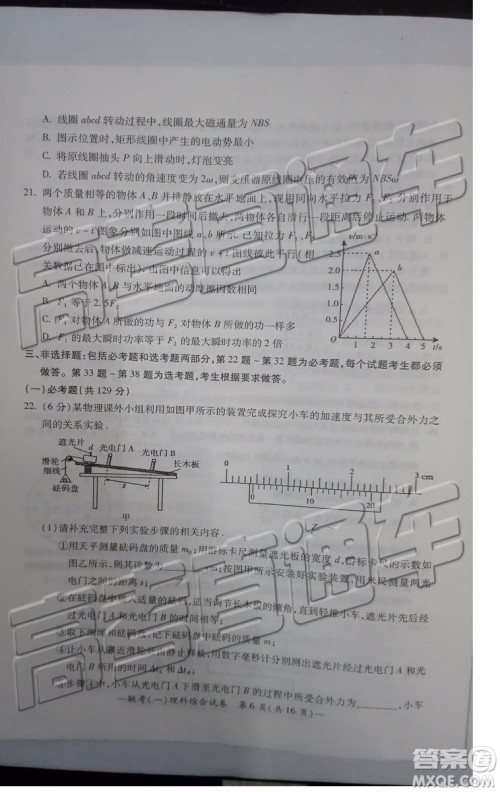 A. 线圈 abcd 转动过程中,线圈最大磁通量为 NBS
B. 图示位置时,矩形线圈中产生的电动势最小
C. 将原线圈抽头 P 向上滑动时,灯泡变亮
D. 若线圈 abcd 转动的角速度变为 2ω,则变压器原线圈电压的有效值为 NBSω
21. 两个质量相等的物体 A、B 并排静放在水平地面上,现用同向水平拉力 F₁、F₂ 分别作用于
物体 A 和 B 上,分别作用一段时间后撤去,两物体各自滑行一段距离后停止下来. 两物体
运动的 v - t 图象分别如图中图线 a、b 所示. 已知拉力 F₁、F₂
分别撤去后,物体做减速运动过程的 v - t 图线彼此平行(相
关数据已在图中标出),由图中信息可知
A. 两个物体 A、B 与水平地面的动摩擦因数相同
B. F₁ 等于 2.5F₂
C. F₁ 对物体 A 所做的功与 F₂ 对物体 B 所做的功一样多
D. F₁ 的最大瞬时功率等于 F₂ 的最大瞬时功率的 2 倍
v/(m·s⁻¹)
2.5
2.0
1.5
1.0
0.5
a
b
0 1 2 3 4 5 t/s
三、非选择题:包括必考题和选考题两部分,第 22 题~第 32 题为必考题,每个试题考生都必须
做答。第 33 题~第 38 题为选考题,考生根据要求做答。
(一)必考题(共 129 分)
22. (6 分)某物理课外小组利用如图甲所示的装置完成探究小车的加速度与其所受合外力之
间的关系实验.
遮光片
d
光电门A
光电门B
滑轮
细线
长木板
砝码盘
s
甲
0 1 2 3 cm
0 10 20
乙
(1)请补充完整下列实验步骤的相关内容.
①用天平测量砝码盘的质量 m₀;用游标卡尺测量遮光板的宽度 d,游标卡尺的示数如
图乙所示,按图甲所示安装好实验装置,用米尺测量两光
电门之间的距离 s;
②在砝码盘中放入适量的砝码,适当调节长木板的倾角,直到轻推小车,遮光片先后经
过光电门 A 和光电门 B 的时间相等;
③取下细线和砝码盘,记下砝码的质量 m;
④让小车从靠近滑轮处由静止释放,用数字毫秒计时器分别测出遮光片经过光电门 A 和光电门
B 所用的时间 Δt_A 和 Δt_B;
⑤步骤④中,小车从光电门 A 下滑至光电门 B 的过程中所受合外力为______,小车
—联考(一)理科综合试卷 第 6 页(共 16 页)—
高考直通车
高考直通车
答案圈
MXQE.COM